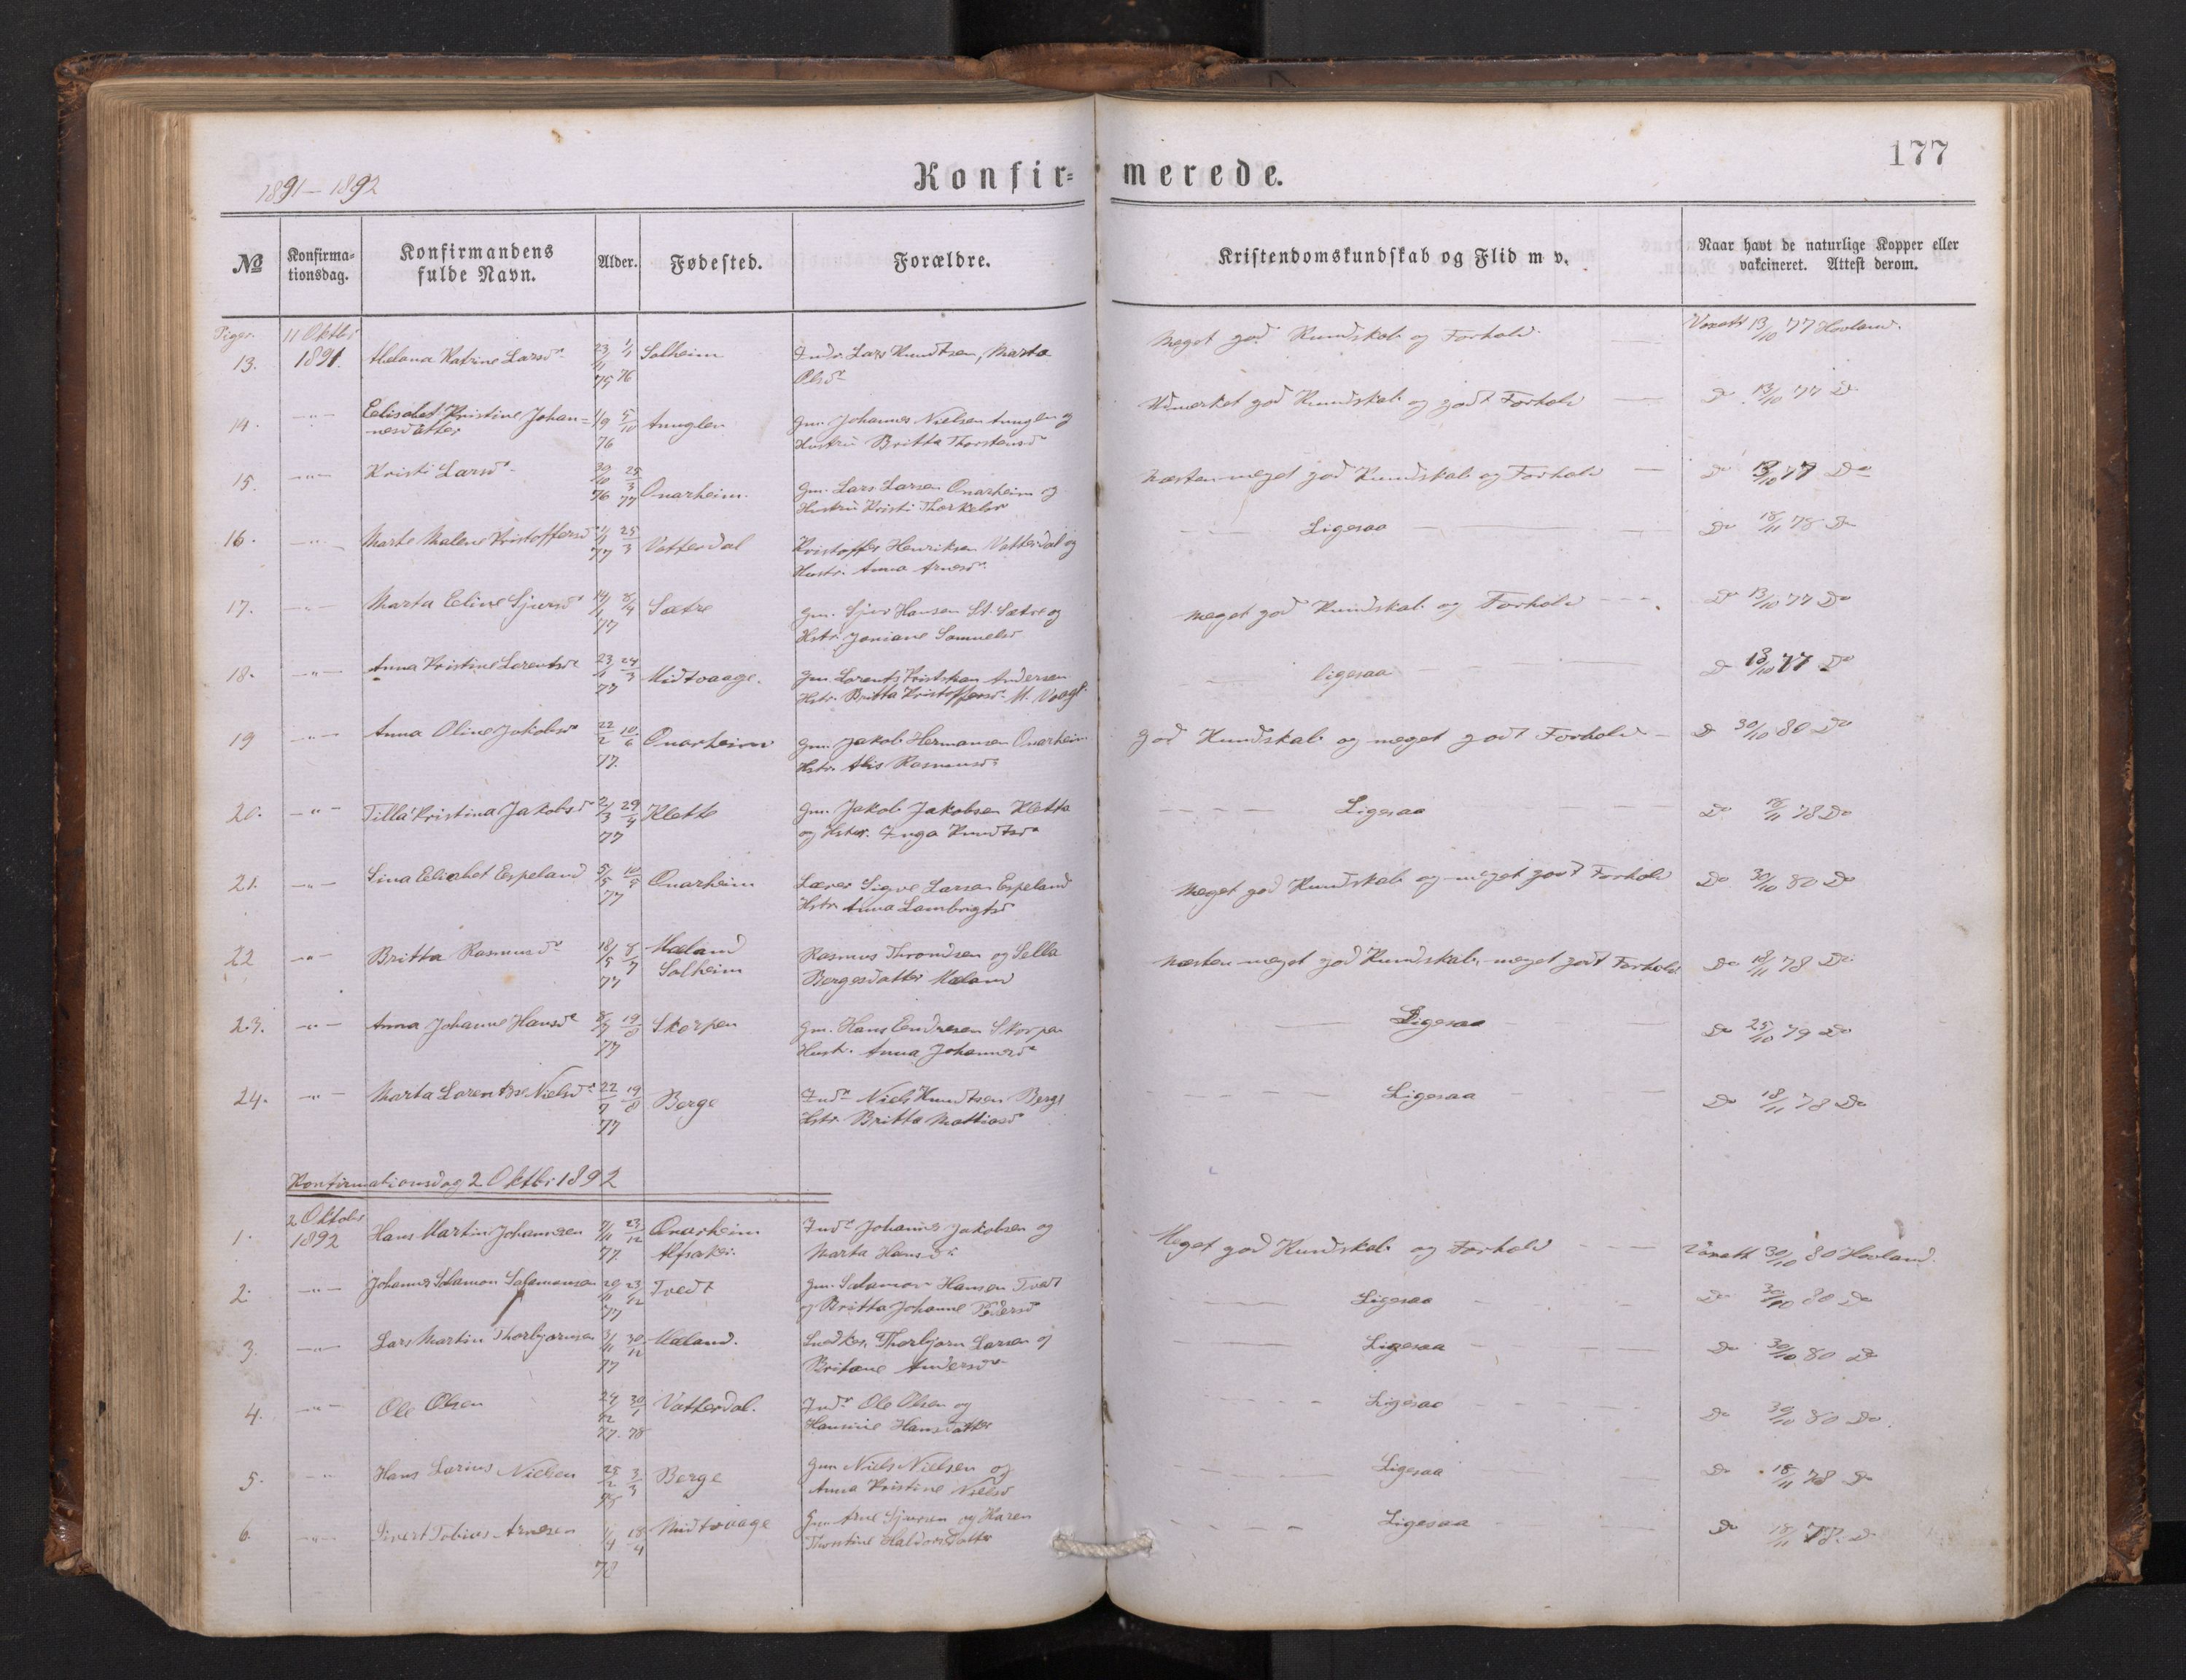 177
1891–1892
Konfir= merede.
№ Konfirma= tionsdag. Konfirmandens fulde Navn. Alder. Fødested. Forældre. Kristendomskundskab og Flid m v. Naar havt de naturlige Kopper eller vakcineret. Attest derom.
Piger. 11 Oktbr
13. 1891. Helana Katrine Larsdr 23/11 75 1/1 76 Solheim Indr. Lars Knudtsen, Marta Olsdr Meget god Kundskab og Forhold 13/10 77 Hovland.
14. –"– Edlisabet Kristine Johan=
nesdatter 1/9 76 5/10 Anuglen Gm. Johannes Nielsen Anuglen og
Hustru Britta Thorstensdr Udmærket god Kundskab og godt Forhold Do 13/10 77 Do
15. –"– Kristi Larsdr 30/10 76 25/3 77 Onarheim. Gm. Lars Larsen Onarheim og
Hustru Kristi Thorkelsdr Næsten meget god Kundskab og Forhold Do 13/10 77 Do
16. –"– Marte Malene Kristoffersdr 1/1 77 25/3 Vatterdal Kristoffer Henriksen Vatterdal og
Hustr. Anna Arnesdr Ligesaa Do 18/11 78 Do
17. –"– Marta Eline Sjursdr 14/1 77 8/4 Sætre Gm. Sjur Hansen St. Sætre og
Hstr. Joniane Samuelsdr Meget god Kundskab og Forhold Do 13/10 77 Do
18. –"– Anna Kristine Lorentsdr 23/1 77 24/3 Midtvaage. Gm. Lorents Kristian Andersen
Hstr. Britta Kristoffersdr M. Vaage ligesaa Do 13/10 77 Do
19 –"– Anna Oline Jakobsdr 22/2 77. 10/6 Onarheim Gm. Jakob Hermansen Onarheim
Hstr. Alis Rasmusdr God Kundskab og meget godt Forhold Do 30/10 80 Do
20. –"– Tilla Kristina Jakobsdr 2/3 77 29/4 Klette Gm. Jakob Jakobsen Kletta
og Hstr. Inga Knudtsdr Ligesaa Do 18/11 78 Do
21. –"– Sina Elisabet Espeland 5/5 77 10/5 Onarheim Lærer Sigve Larsen Espeland
Hstr Anna Lambrigtsdr Meget god Kundskab og meget godt Forhold Do 30/10 80 Do
22 –"– Britta Rasmusdr 18/5 77 8/7 Mæland
Solheim Rasmus Throndsen og Sella
Bergesdatter Mæland Næsten meget god Kundskab, meget godt Forhold Do 18/11 78 Do
23. –"– Anna Johanne Hansdr 8/7 77 19/8 Skorpen Gm. Hans Endresen Skorpen
Hustr. Anna Johannesdr Ligesaa Do 25/10 79 Do
24. –"– Marta Lorentse Nielsdr 22/7 77 19/8 Berge Indr Niels Knudtsen Berge
Hstr. Britta Mattiasdr Ligesaa Do 18/11 78 Do
Konfirmationsdag 2 Oktbr 1892
1. 2 Oktobr
1892 Hans Martin Johannesen 7/11 77. 23/12 Onarheim
Indr Johannes Jakobsen og
Marta Hansdr Meget god Kundskab og Forhold 30/10 80 Hovland.
2. –"– Johannes Salamon Salamonsen 20/11 77 23/12 Tvedt Gm. Salamon Hansen Tvedt
og Britta Johanne Pedersdr Ligesaa Do 30/10 80 Do
3. –"– Lars Martin Thorbjørnsen 3/11 77 30/12 Mæland. Snedker Thorbjørn Larsen og
Britane Andersdr Ligesaa Do 30/10 80 Do
4. –"– Ole Olsen 24/12 77. 30/1 78 Vatterdal. Indr Ole Olsen og
Hansine Hansdatter Ligesaa Do 30/10 80 Do.
5. –"– Hans Larius Nielsen 25/2 78 3/3 Berge Gm Niels Nielsen og
Anna Kristine Nielsdr Ligesaa Do 18/11 78 Do
6. –"– Sivert Tobias Arnesen 1/4 78 18/4 Midtvaage Gm Arne Sjursen og Karen
Thorstine Haldorsdatter Ligesaa Do 18/11 78. Do